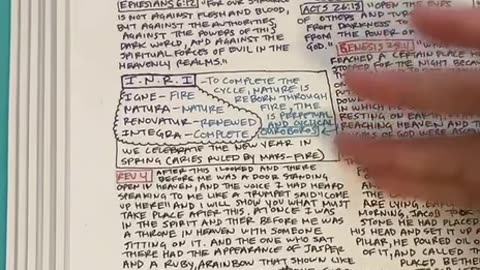 EPHESIANS 6:12 "FOR OUR STRUGGLE
IS NOT AGAINST FLESH AND BLOOD,
BUT AGAINST THE AUTHORITIES,
AGAINST THE POWERS OF THIS
DARK WORLD, AND AGAINST THE
SPIRITUAL FORCES OF EVIL IN THE
HEAVENLY REALMS."
I.N.R.I
IGNE-FIRE
NATURA-NATURE
RENOVATUR-RENEWED
INTEGRA-COMPLETE
-TO COMPLETE THE
CYCLE, NATURE IS
REBORN THROUGH
FIRE, TIME
IS PERPETUAL
AND CYCLICAL
OUROBOROS
WE CELEBRATE THE NEW YEAR IN
SPRING (ARIES RULED BY MARS-FIRE)
REV 4 AFTER THIS I LOOKED AND THERE
BEFORE ME WAS A DOOR STANDING
OPEN IN HEAVEN, AND THE VOICE I HAD HEARD
SPEAKING TO ME LIKE A TRUMPET SAID "COME
UP HERE!! AND I WILL SHOW YOU WHAT MUST
TAKE PLACE AFTER THIS, AT ONCE I WAS
IN THE SPIRIT AND THER BEFORE ME WAS
A THRONE IN HEAVEN WITH SOMEONE
SITTING ON IT. AND THE ONE WHO SAT
THERE HAD THE APPEARANCE OF JASPER
AND A RUBY, A RAINBOW THAT SHONE LIKE
ACTS 26:18 "OPEN THE EYES
OF OTHERS AND TURN
FROM DARKNESS TO
FROM THE POWER OF
GOD."
GENESIS 28:11
REACHED A CERTAIN PLACE HE
STOPPED FOR THE NIGHT BECAUSE
IN WHICH HE
RESTING ON EARTH,
REACHING HEAVEN AND
OF GOD WERE ASCEN
ARE LYING. EARLY
MORNING, JACOB TOOK
STONE HE HAD PLACED
HIS HEAD AND SET IT UP A
PILLAR, HE POURED OIL O
OF IT, AND CALLED TH
PLACED BETHE